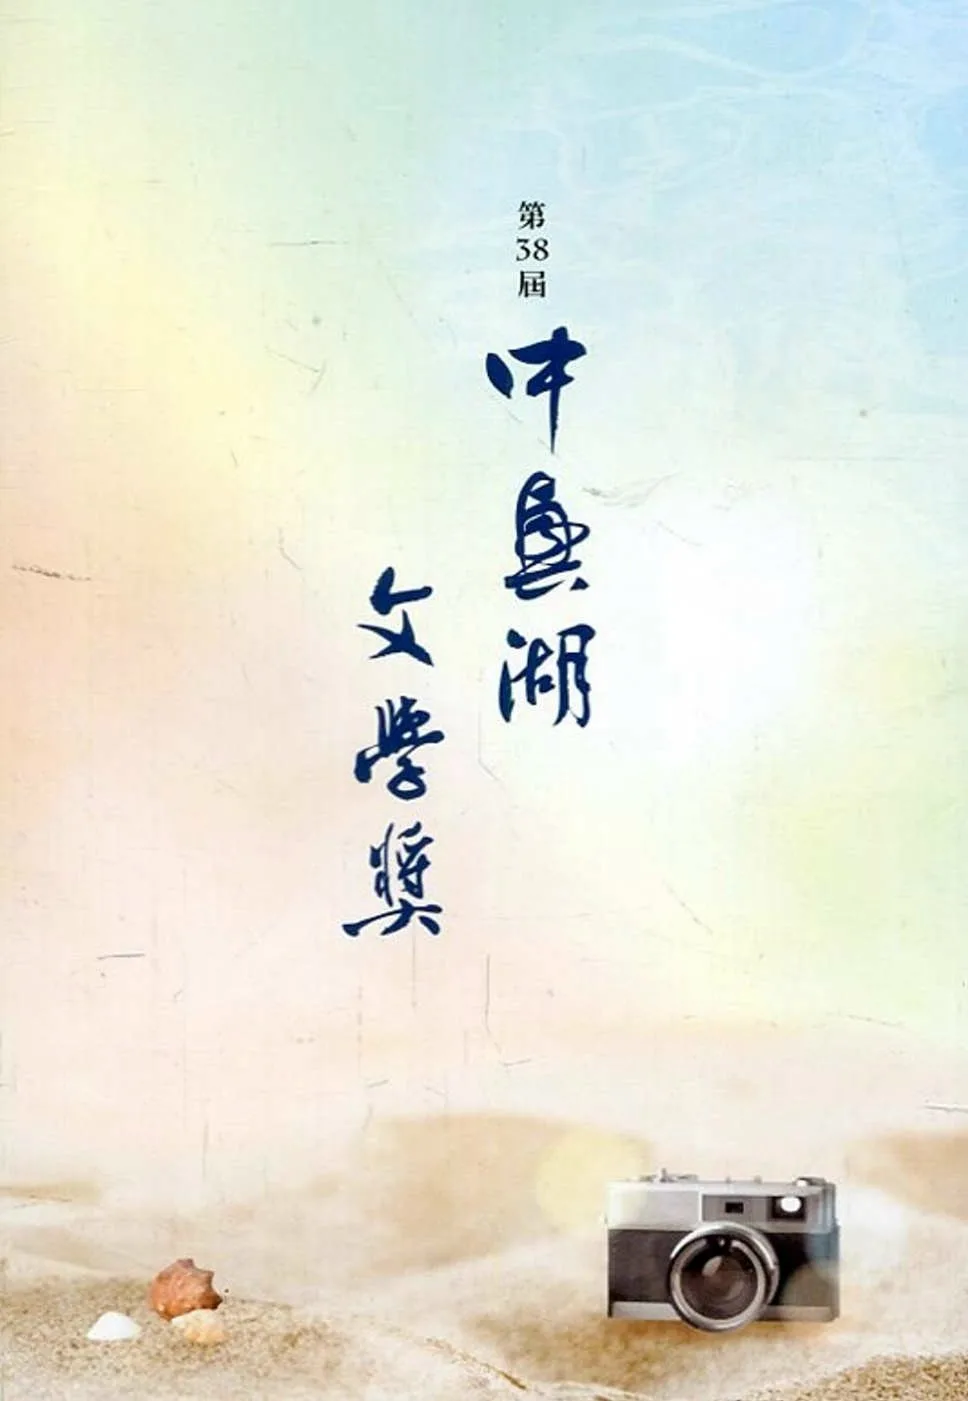 第38屆
中興湖
文學獎